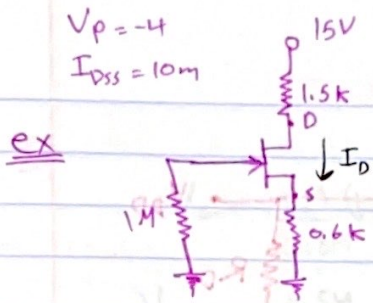 Vp = -4
IDSS = 10m
15V
1.5k
D
ex
ID
S
1M
0.6k